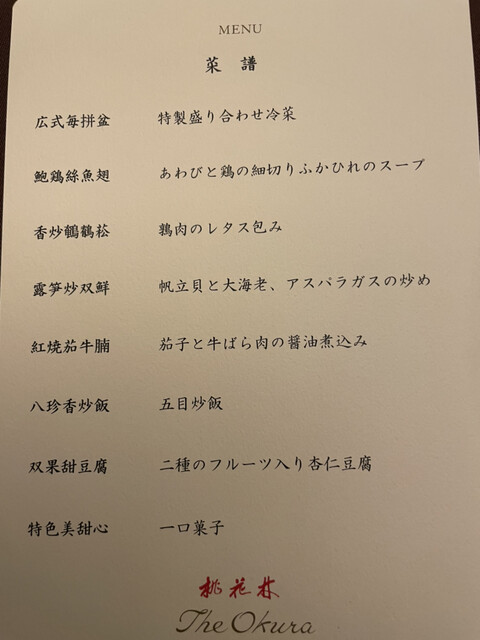 MENU
菜 譜
広式毎拼盆 特製盛り合わせ冷菜
鮑鶏絲魚翅 あわびと鶏の細切りふかひれのスープ
香炒鵪鶉菘 鶉肉のレタス包み
露笋炒双鮮 帆立貝と大海老、アスパラガスの炒め
紅焼茄牛腩 茄子と牛ばら肉の醤油煮込み
八珍香炒飯 五目炒飯
双果甜豆腐 二種のフルーツ入り杏仁豆腐
特色美甜心 一口菓子
桃花林
The Okura